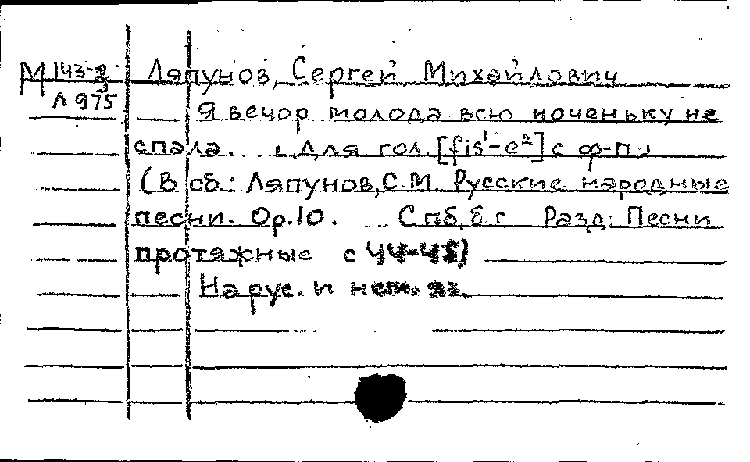 М 143-3 Ляпунов, Сергей Михайлович
Л 975
Я вечор молода всю ноченьку не
спала. [Для гол. [fis¹-e²] с ф-п]
(В сб.: Ляпунов, С.М. Русские народные
песни. Op.10. Спб, б.г. Разд: Песни
протяжные с 44-45)
На рус. и нем. яз.